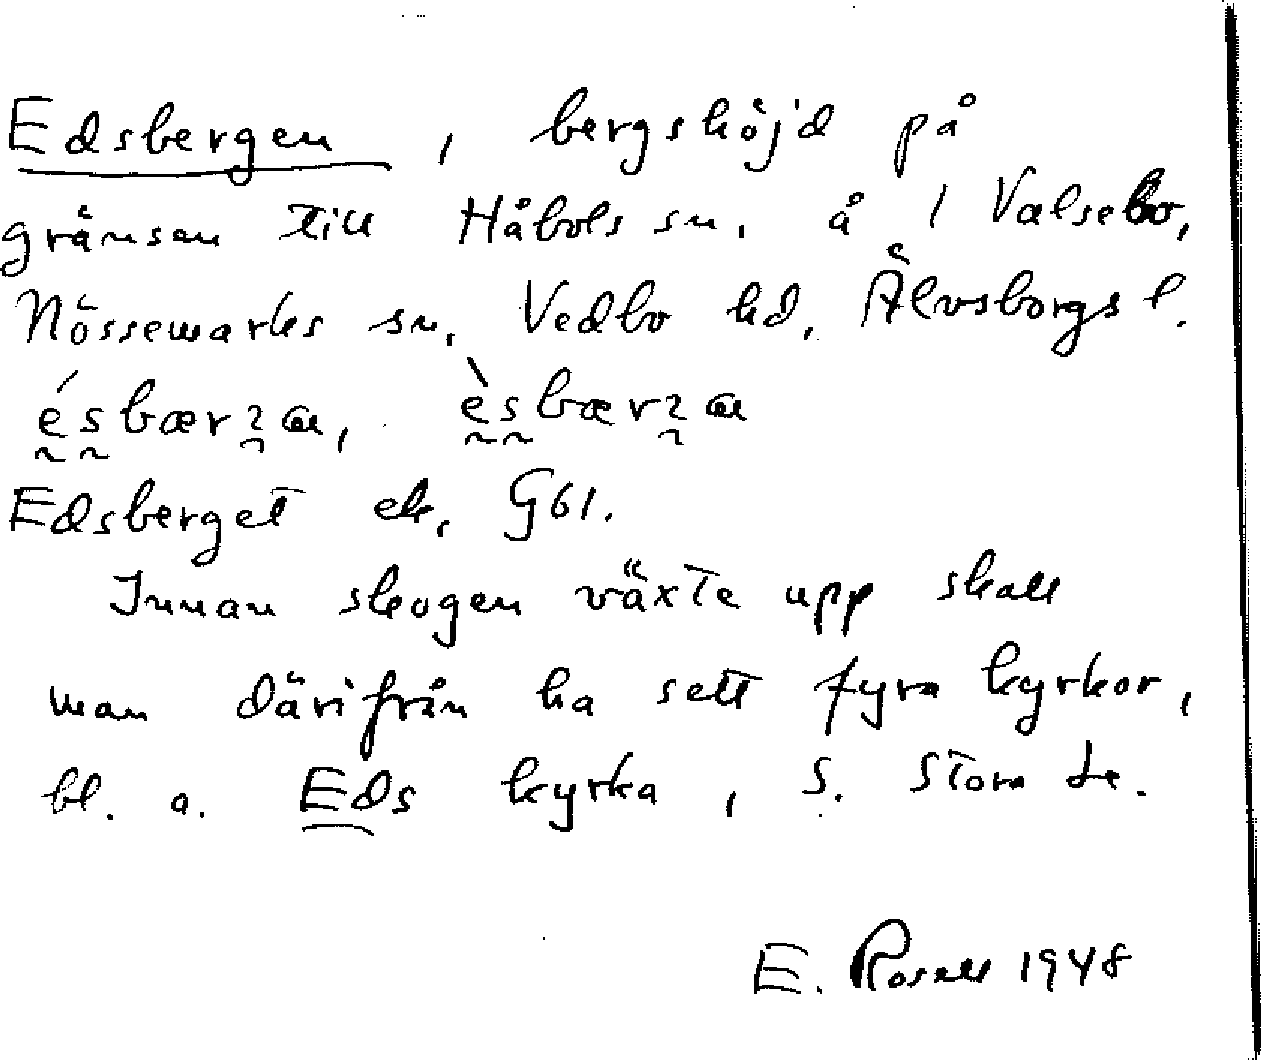 Edsbergen, bergshöjd på
gränsen till Håbols sn. å 1 Valsebo,
Nössemarks sn, Vedbo hd, Älvsborgs l.
Edsberget ek. G61.
Innan skogen växte upp skall
man därifrån ha sett fyra kyrkor,
bl. a. Eds kyrka, S. Stora Le.
E. Rosell 1948